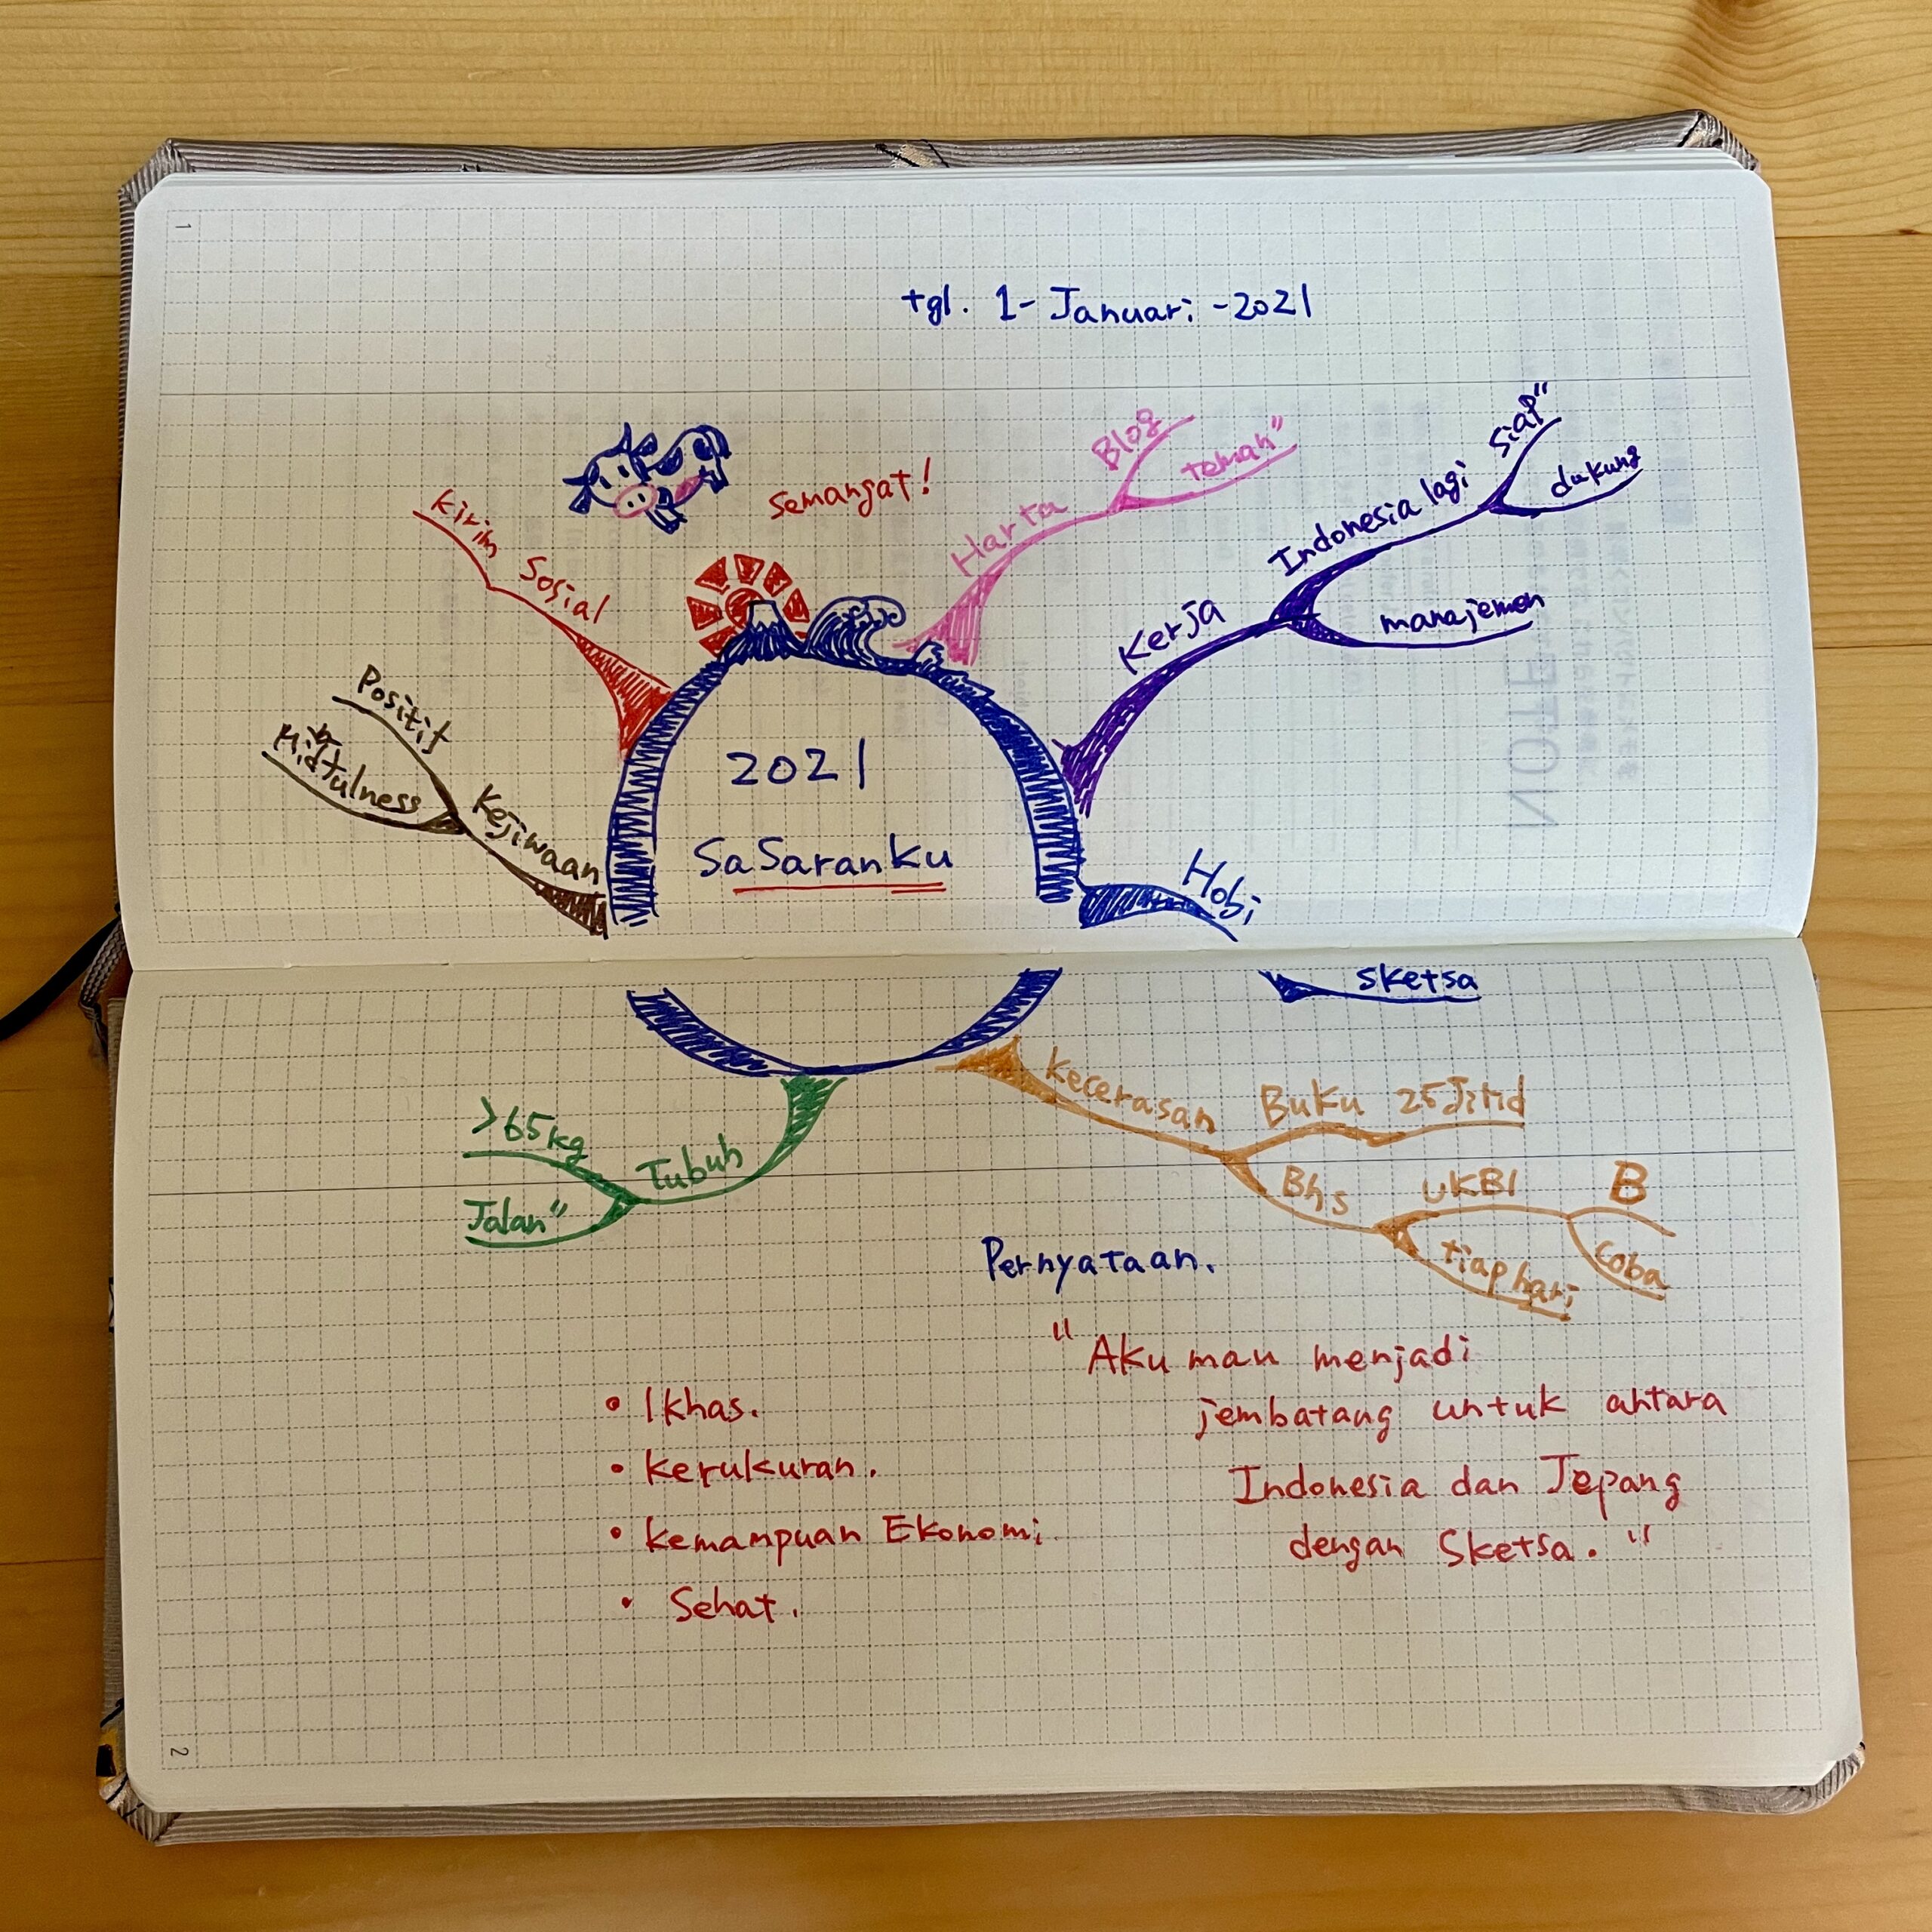 1
tgl. 1-Januari-2021
Semangat!
Kirim
Sosial
Harta
Blog
teman"
Kerja
Indonesia lagi
Siap"
dukung
manajemen
Positif
Kejiwaan
2021
SaSaranku
Hobi
Sketsa
>65kg
Jalan"
Tubuh
Kecerasan
Bhs
UKBI
B
Coba
tiap hari
Pernyataan.
"Aku mau menjadi
jembatang untuk antara
Indonesia dan Jepang
dengan Sketsa."
• Ikhas.
• Kerukuran.
• Kemampuan Ekonomi
• Sehat.
2